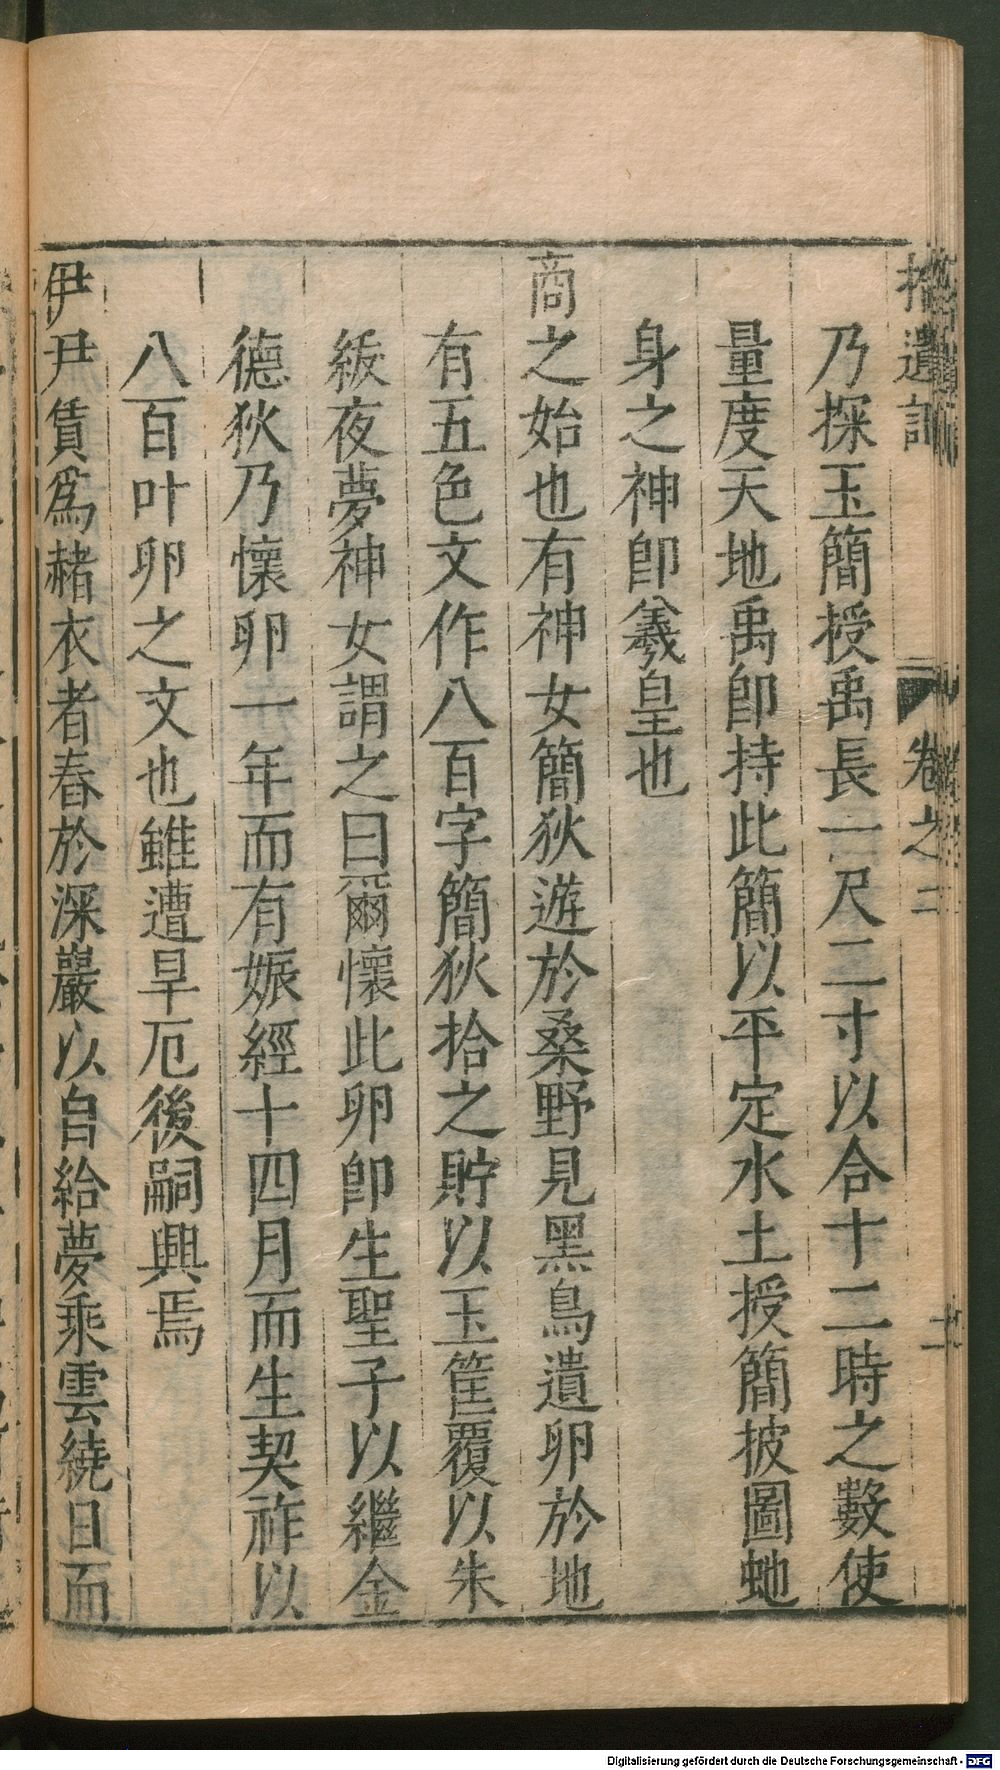 拾遺記 卷之二 二
乃探玉簡授禹長一尺二寸以合十二時之數使
量度天地禹卽持此簡以平定水土授簡披圖虵
身之神卽羲皇也
商之始也有神女簡狄遊於桑野見黑鳥遺卵於地
有五色文作八百字簡狄拾之貯以玉筐覆以朱
紱夜夢神女謂之曰爾懷此卵卽生聖子以繼金
德狄乃懷卵一年而有娠經十四月而生契祚以
八百叶卵之文也雖遭旱厄後嗣興焉
伊尹賃爲赭衣者舂於深巖以自給夢乘雲繞日而
Digitalisierung gefördert durch die Deutsche Forschungsgemeinschaft - DFG